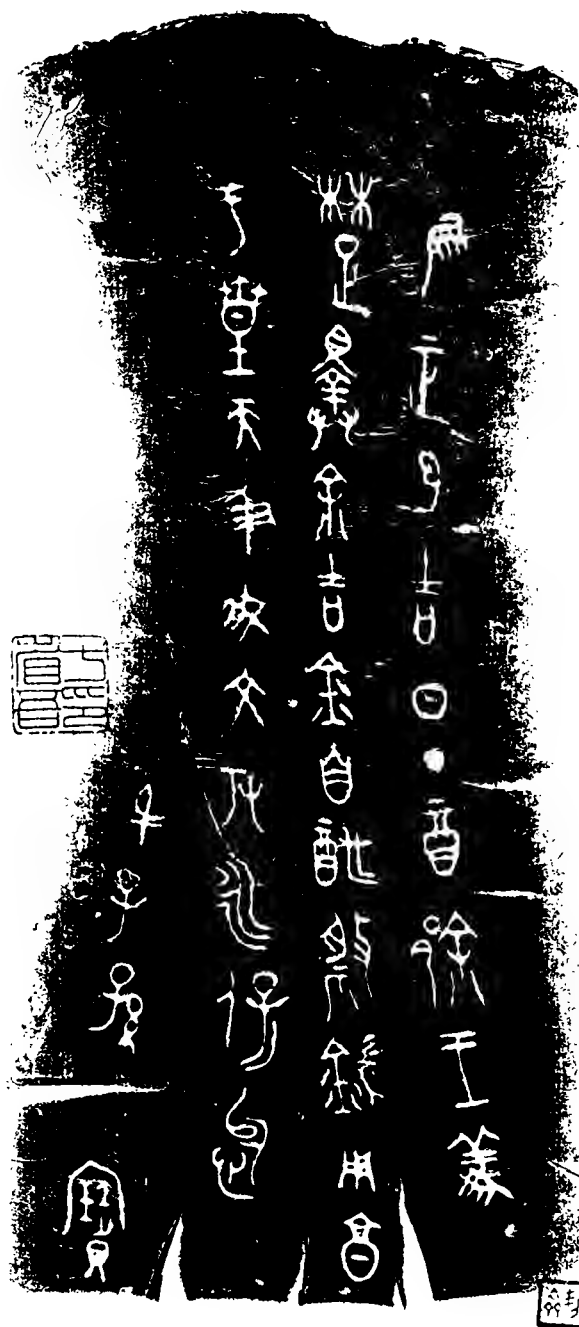 隹正月吉日丁酉䣄王義
楚擇余吉金自酢祭鍴用享
于皇天及我文考永保怠
身子孫寶